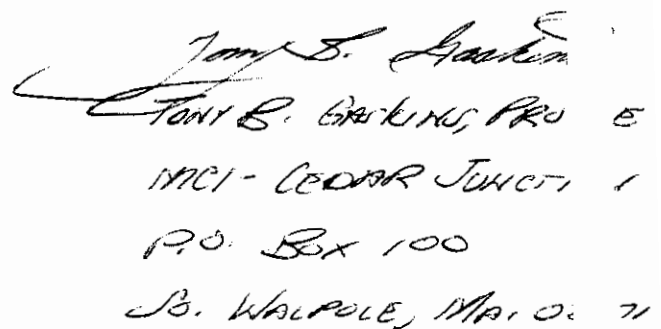 Tony B. Gaskin
TONY B. GASKINS, PRO E
MCI - CEDAR JUNCTI
P.O. BOX 100
SO. WALPOLE, MA. 0 71